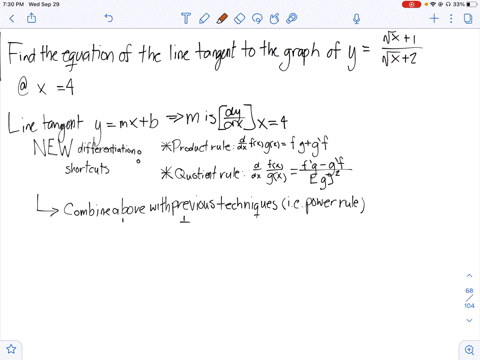 7:30 PM Wed Sep 29
33%
Find the equation of the line tangent to the graph of y = √x + 1 / √x + 2
@ x = 4
Line tangent y = mx + b ⟹ m is [dy/dx] x = 4
NEW differentiation shortcuts :
* Product rule: d/dx f(x) g(x) = f'g + g'f
* Quotient rule: d/dx f(x)/g(x) = f'g - g'f / [g]²
↳ Combine above with previous techniques (i.e. power rule)
68 / 104